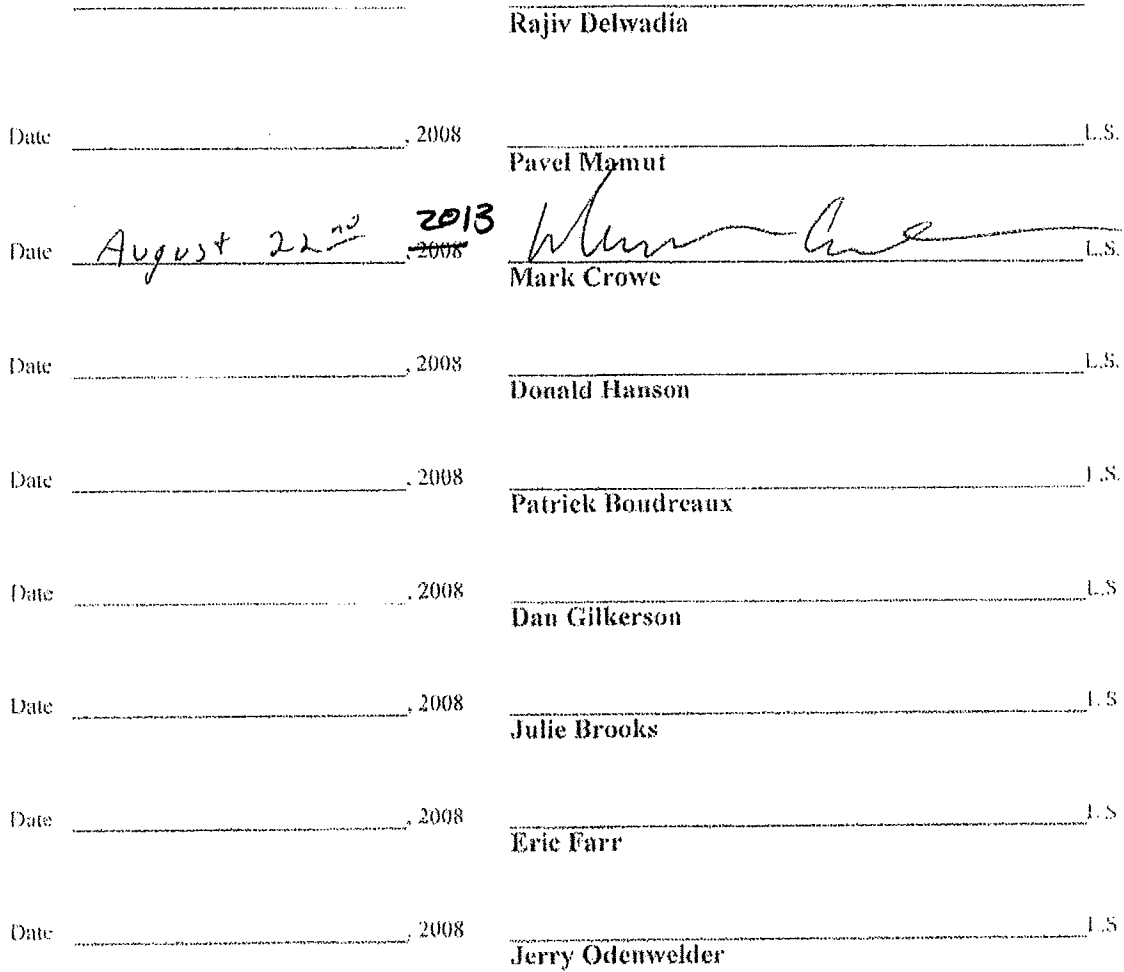 Rajiv Delwadia
Date , 2008 L.S.
Pavel Mamut
2013
Date August 22nd , 2008 L.S.
Mark Crowe
Date , 2008 L.S.
Donald Hanson
Date , 2008 L.S.
Patrick Boudreaux
Date , 2008 L.S
Dan Gilkerson
Date , 2008 L.S
Julie Brooks
Date , 2008 L.S
Eric Farr
Date , 2008 L.S
Jerry Odenwelder